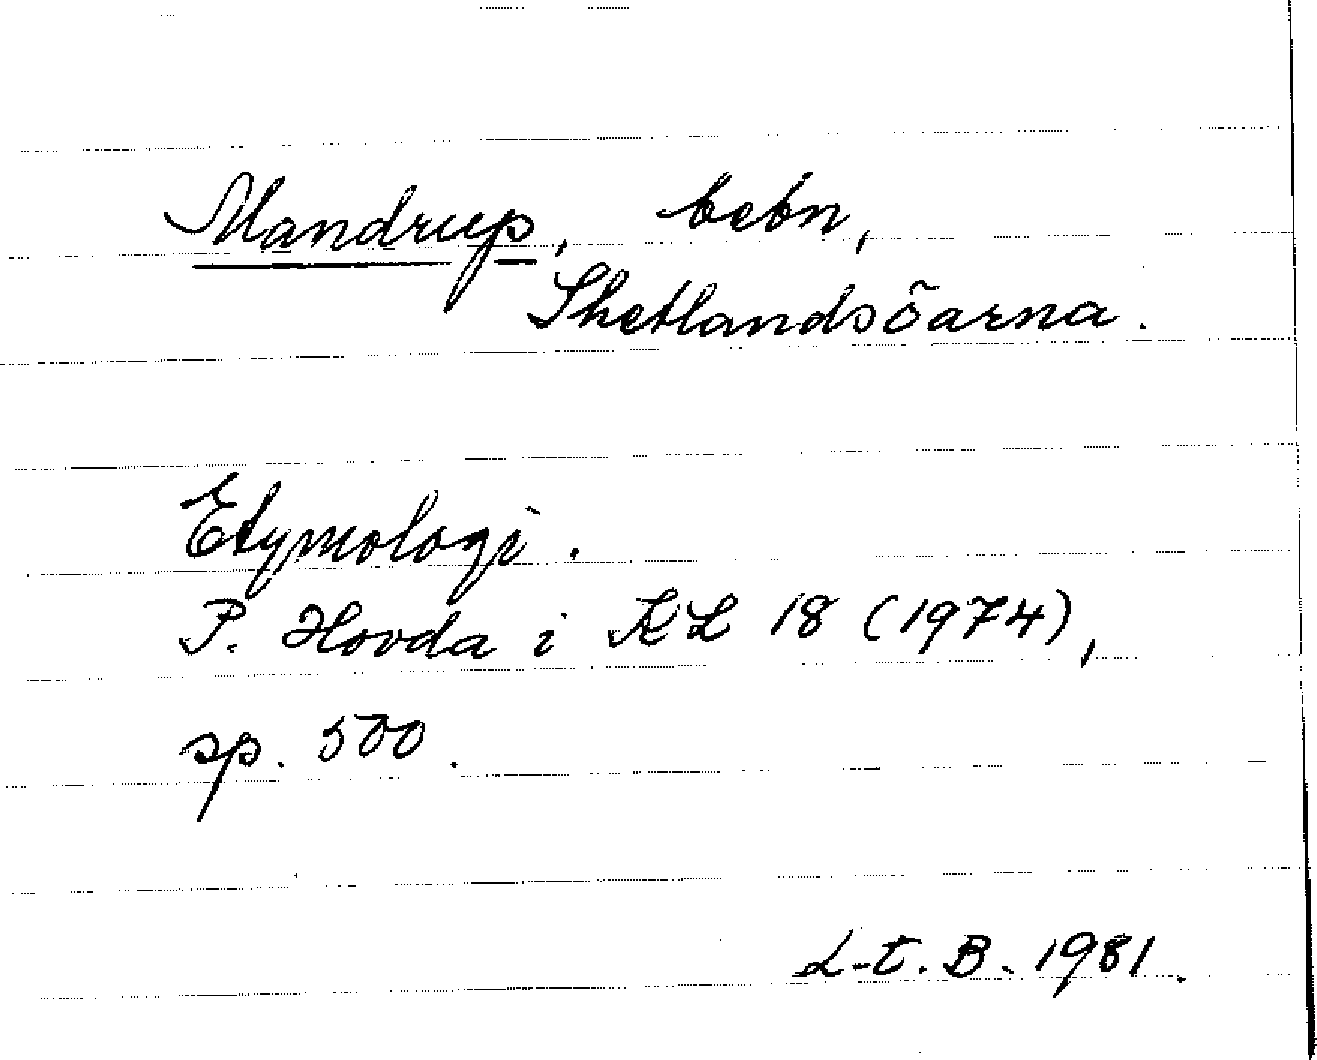 Mandrup, bebn,
Shetlandsöarna.
Etymologi.
P. Hovda i KL 18 (1974),
sp. 500.
L-t. B. 1981.